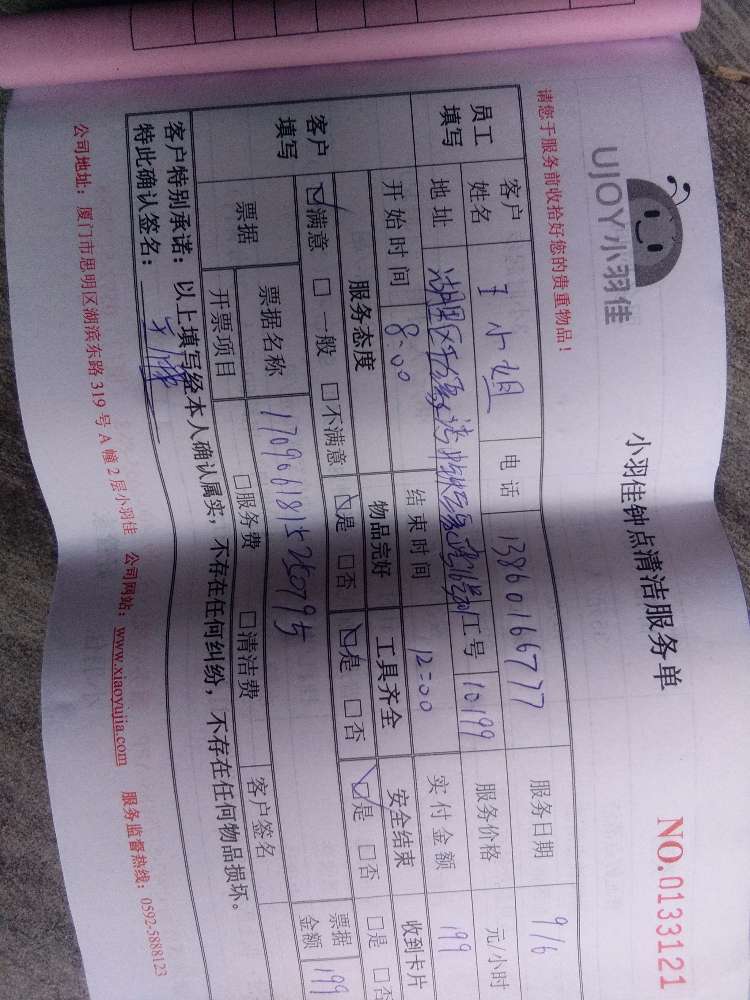 UJOY小羽佳
小羽佳钟点清洁服务单
NO.0133121
请您于服务前收拾好您的贵重物品!
员工填写
客户姓名 王小姐 电话 13860166777 服务日期 9/6
地址 湖里区 工号 10199 服务价格 元/小时
开始时间 8:00 结束时间 12:00 实付金额 199
客户填写
服务态度 物品完好 工具齐全 安全结束 收到卡片
☑满意 □一般 □不满意 ☑是 □否 ☑是 □否 ☑是 □否 □是 □否
票据 票据名称 1709061815250795 票据金额 199
开票项目 □服务费 □清洁费 客户签名
客户特别承诺:以上填写经本人确认属实,不存在任何纠纷,不存在任何物品损坏。
特此确认签名:
公司地址:厦门市思明区湖滨东路319号A幢2层小羽佳 公司网站:www.xiaoyujia.com 服务监督热线:0592-5888123